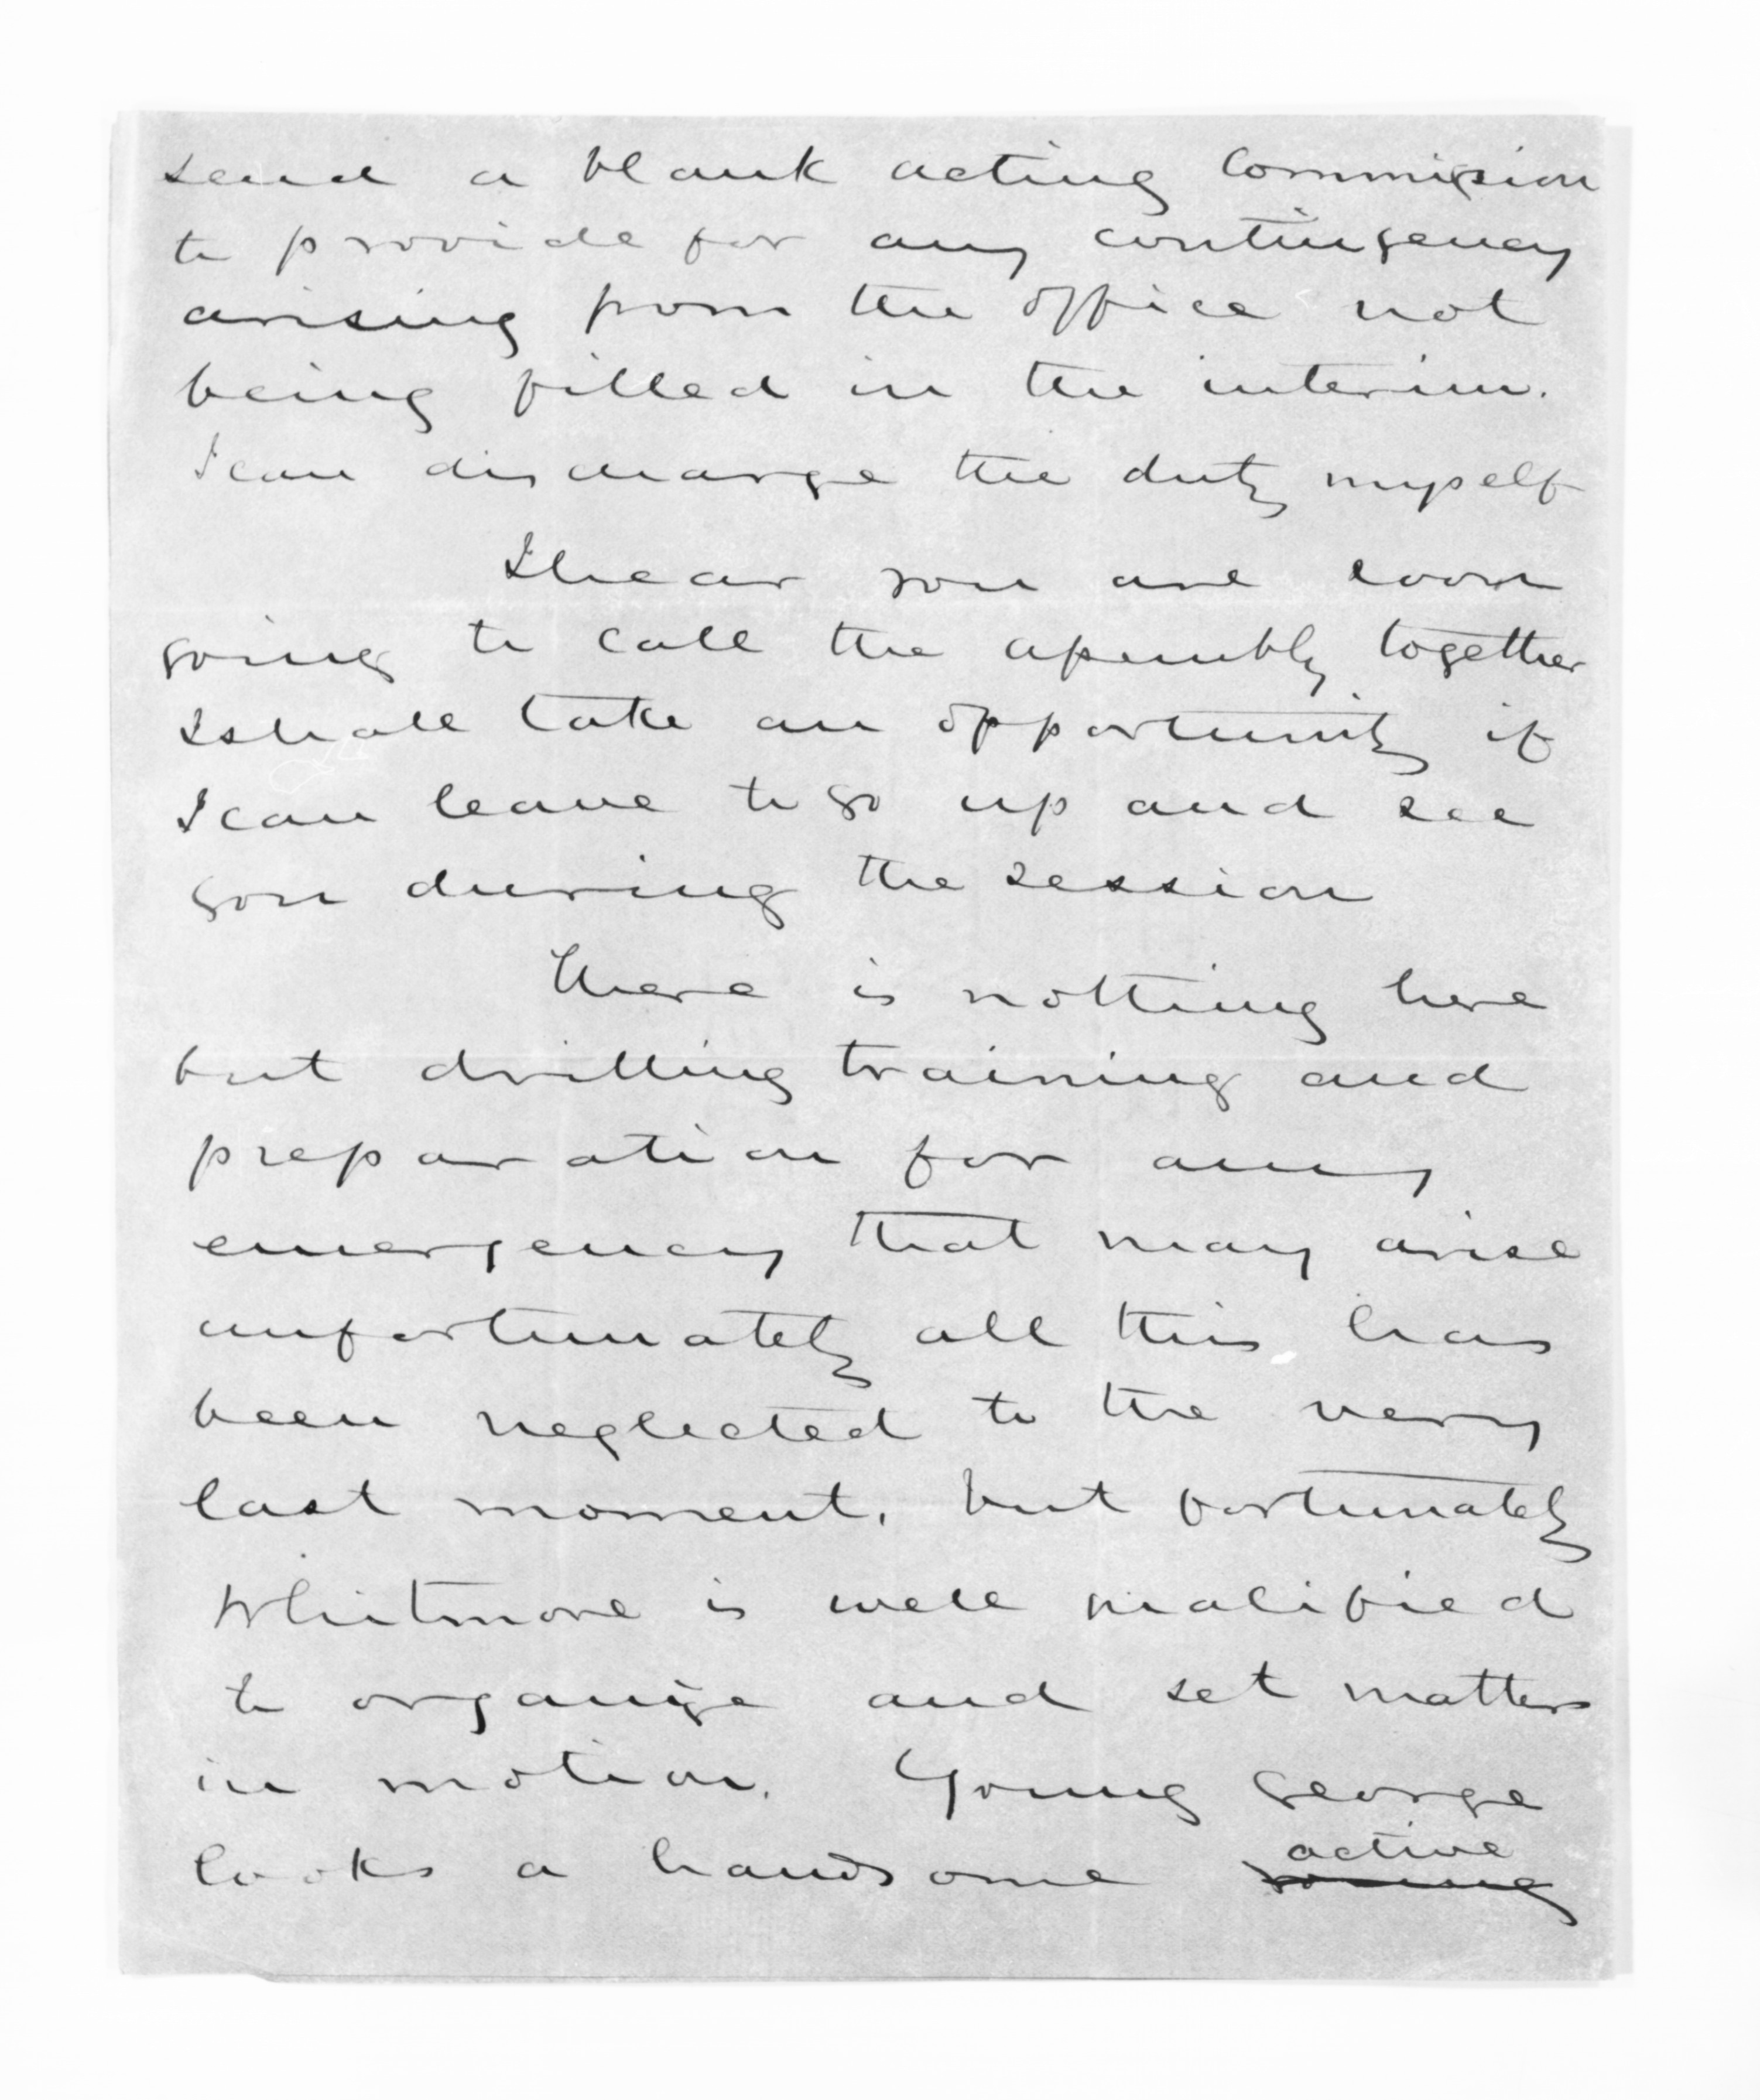 send a blank acting Commission
to provide for any contingency
arising from the office not
being filled in the interim.
I can discharge the duty myself
I hear you are soon
going to call the assembly together
I shall take an opportunity if
I can leave to go up and see
you during the session
There is nothing here
but drilling training and
preparation for any
emergency that may arise
unfortunately all this has
been neglected to the very
last moment, but fortunately
Whitmore is well qualified
to organize and set matters
in motion. Young George
active
looks a handsome young